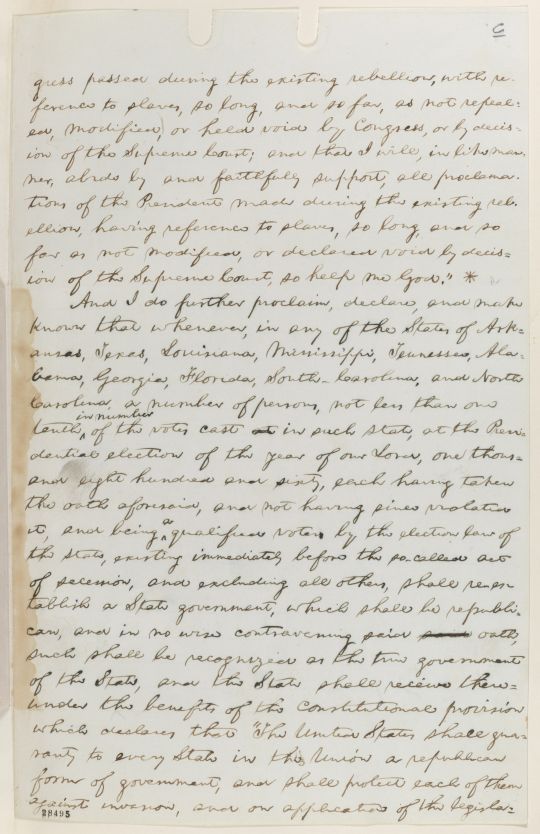 6
gress passed during the existing rebellion, with re-
ference to slaves, so long, and so far, as not repeal-
ed, modified, or held void by Congress, or by decis-
ion of the Supreme Court; and that I will, in like man-
ner, abide by and faithfully support, all proclama-
tions of the President made during the existing reb-
ellion, having reference to slaves, so long and so
far as not modified, or declared void by decis-
ion of the Supreme Court, so help me God." *
And I do further proclaim, declare, and make
known that whenever, in any of the States of Ark-
ansas, Texas, Louisiana, Mississippi, Tennessee, Ala-
bama, Georgia, Florida, South-Carolina, and North
Carolina, a number of persons, not less than one
in number
tenth, of the votes cast in such state, at the Presi-
dential election of the year of our Lord, one thous-
and eight hundred and sixty, each having taken
the oath aforesaid, and not having since violated
it, and being a qualified voter by the election law of
the state, existing immediately before the so-called act
of secession, and excluding all others, shall re-es-
tablish a State government, which shall be republi-
can, and in no wise contravening said oath,
such shall be recognized as the true government
of the State, and the State shall receive there-
under the benefits of the constitutional provision
which declares that "The United States shall gua-
ranty to every State in this Union a republican
form of government, and shall protect each of them
against invasion, and on application of the legisla-
28495